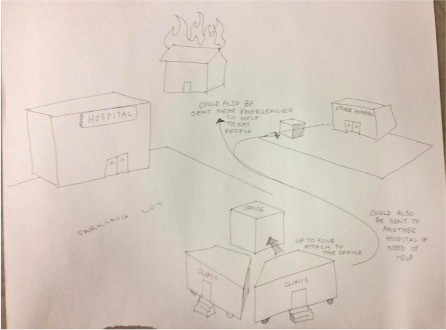 HOSPITAL
COULD ALSO BE
SENT NEAR EMERGENCIES
TO HELP
TREAT
PEOPLE
OTHER HOSPITAL
PARKING LOT
OFFICE
UP TO FOUR
ATTACH TO
THE OFFICE
CLINIC
CLINIC
COULD ALSO
BE SENT TO
ANOTHER
HOSPITAL IF
NEED OF
HELP